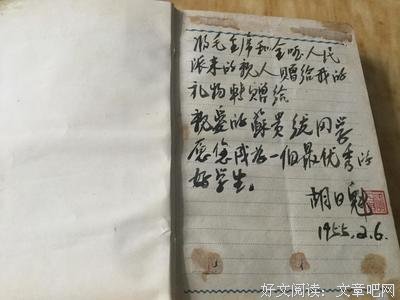 将毛主席和全国人民
派来的亲人赠给我的
礼物转赠给
亲爱的苏贵统同学
愿您成为一个最优秀的
好学生。
胡日魁
1955.2.6.
好文阅读：文章吧网